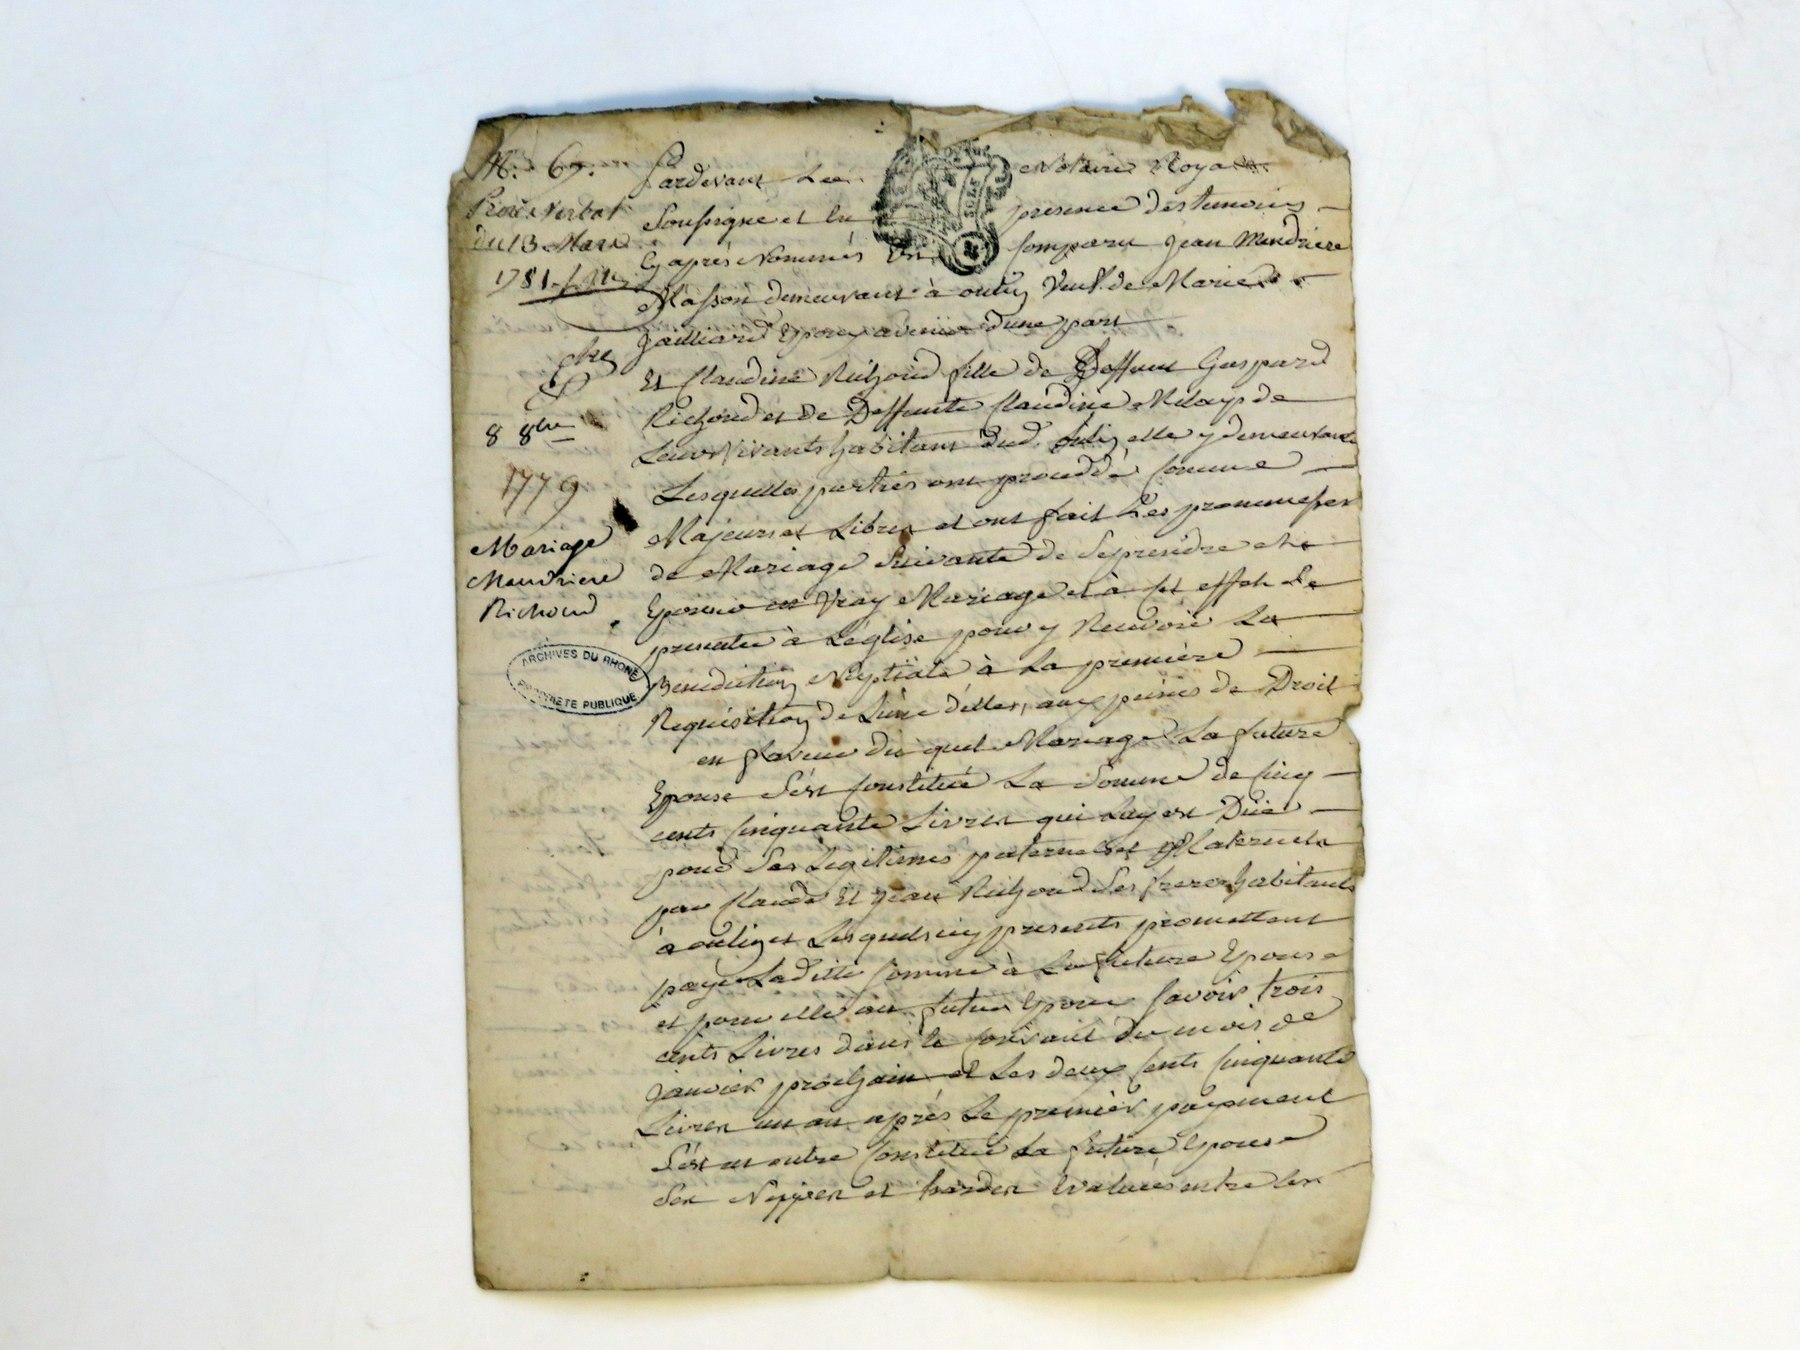 N. 69.
Procès Verbal
du 13 Mars
1781
8 8bre
1779
Mariage
Mandriere
Richoud
ARCHIVES DU RHONE
PROPRIETE PUBLIQUE
Pardevant Le Notaire Royal
Soussigne et En presence des temoins
Cy aprés Nommés est Comparu Jean Mandriere
Masson demeurant à oulin Veuf de Marie
Jailliard Epoux avenir dune part
Et Claudine Richoud fille de Deffunt Gaspard
Richoud et de Deffunte Claudine de
Leurs Vivants habitans dud. oulin elle y demeurante
Lesquelles parties ont procedé Comme
Majeurs et Libres et ont fait Les promesses
de Mariage Suivante de Se prendre et
Epouser en Vray Mariage et à Cet effet Se
presenter à Léglise pour y Recevoir La
Benediction Nuptiale à La premiere
Requisition de Lune delles, aux peines de Droit
en faveur du quel Mariage La future
Epouse Sést Constituée La Somme de Cinq
cents Cinquante Livres qui Luy est Düe
pour Ses Legitimes paternels et Maternels
par Claude Et Jean Richoud Ses freres habitants
à oulin et Lesquels icy presents promettent
payer Laditte Somme à La future Epouse
et pour elle au futur Epoux Savoir trois
cents Livres dans le Courant du mois de
Janvier prochain et Les deux Cents Cinquante
Livres un an aprés Le premier payement
Sést en outre Constituée La future Epouse
Ses Nippes et hardes Evalués entre les